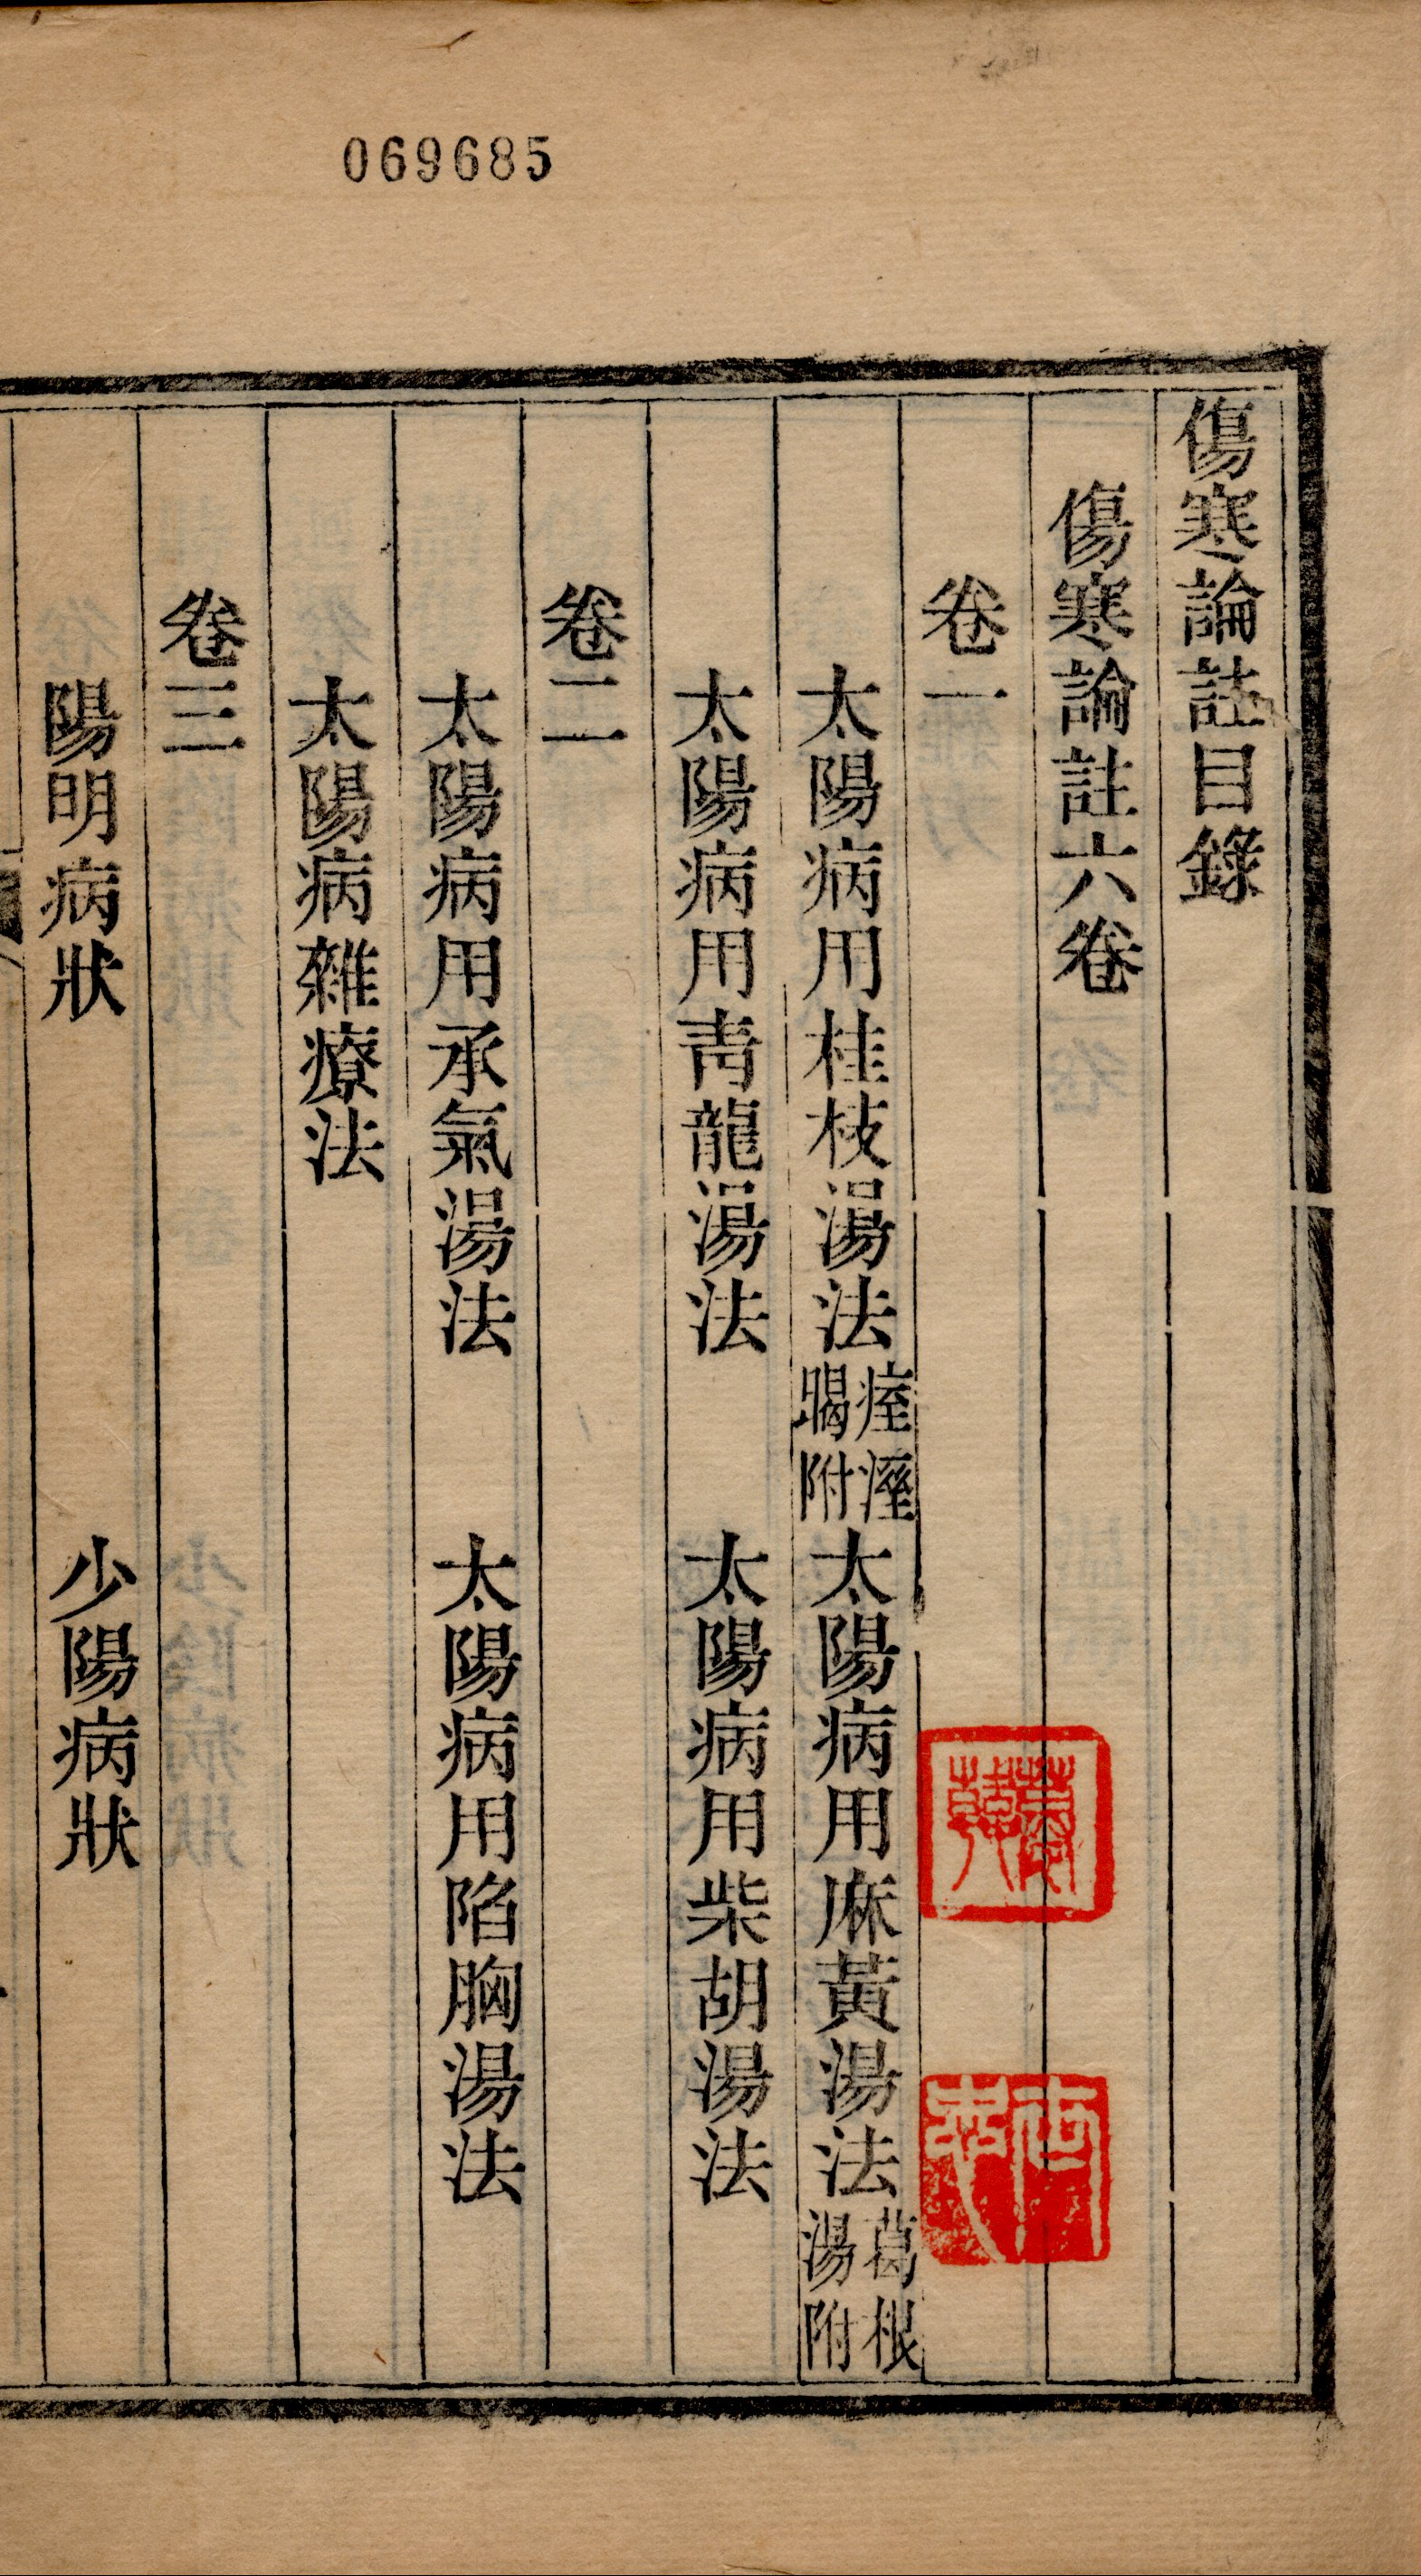 069685
傷寒論註目錄
傷寒論註六卷
卷一
太陽病用桂枝湯法 痓溼暍附 太陽病用麻黃湯法 葛根湯附
太陽病用青龍湯法 太陽病用柴胡湯法
卷二
太陽病用承氣湯法 太陽病用陷胸湯法
太陽病雜療法
卷三
陽明病狀 少陽病狀